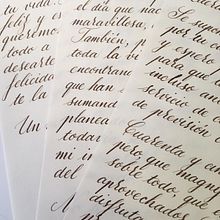 tu vida.
feliz y es
queremo
todo a
desearte
felicida
te la
Un
el día que nac
maravillosa,
También, p
toda la vi
encontram
que han
sumand
planea
todar
mi in
del
Se supon
por tu
y espero
para que
incluso an
servicio de
de previsión
Cuarenta y an
pero que magni
sobre todo, que
aprovechados
disfruta